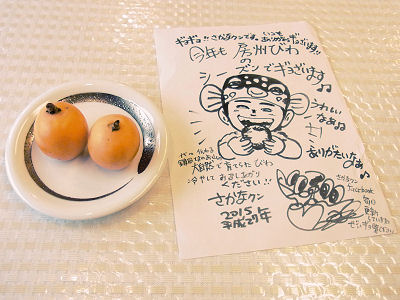 ギョギョ!! さかなクンです。いつも
ありがとうギョざいます!!
今年も 房州びわ
の
シーズンでギョざいます♪
うれしい
なぁ♪
ありがたいなぁ♪
大船で育てたびわ
冷やしてお召しあがり
ください!!
さかなクン
2015
平成27年
さかなクン
facebook
毎日
更新